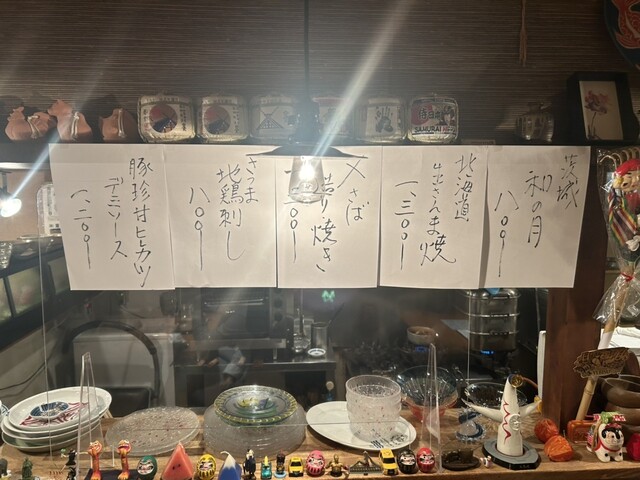 茨城
和の月
八〇〇ー
北海道
生さんま焼
一、三〇〇ー
〆さば
造り 焼き
さつま
地鶏刺し
八〇〇ー
豚珍甘ヒレカツ
デミソース
一、二〇〇ー
SAMURAI